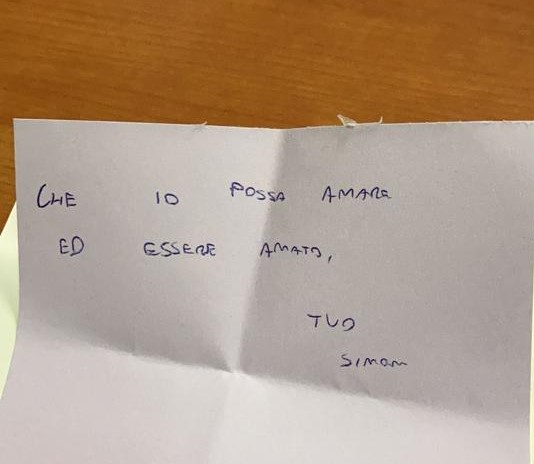 CHE IO POSSA AMARE
ED ESSERE AMATO,
TUO
SIMON